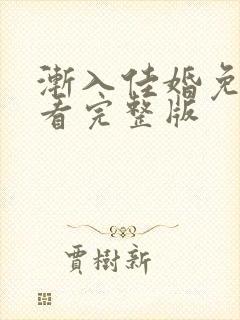 漸入佳婚免
看完整版
賈樹新